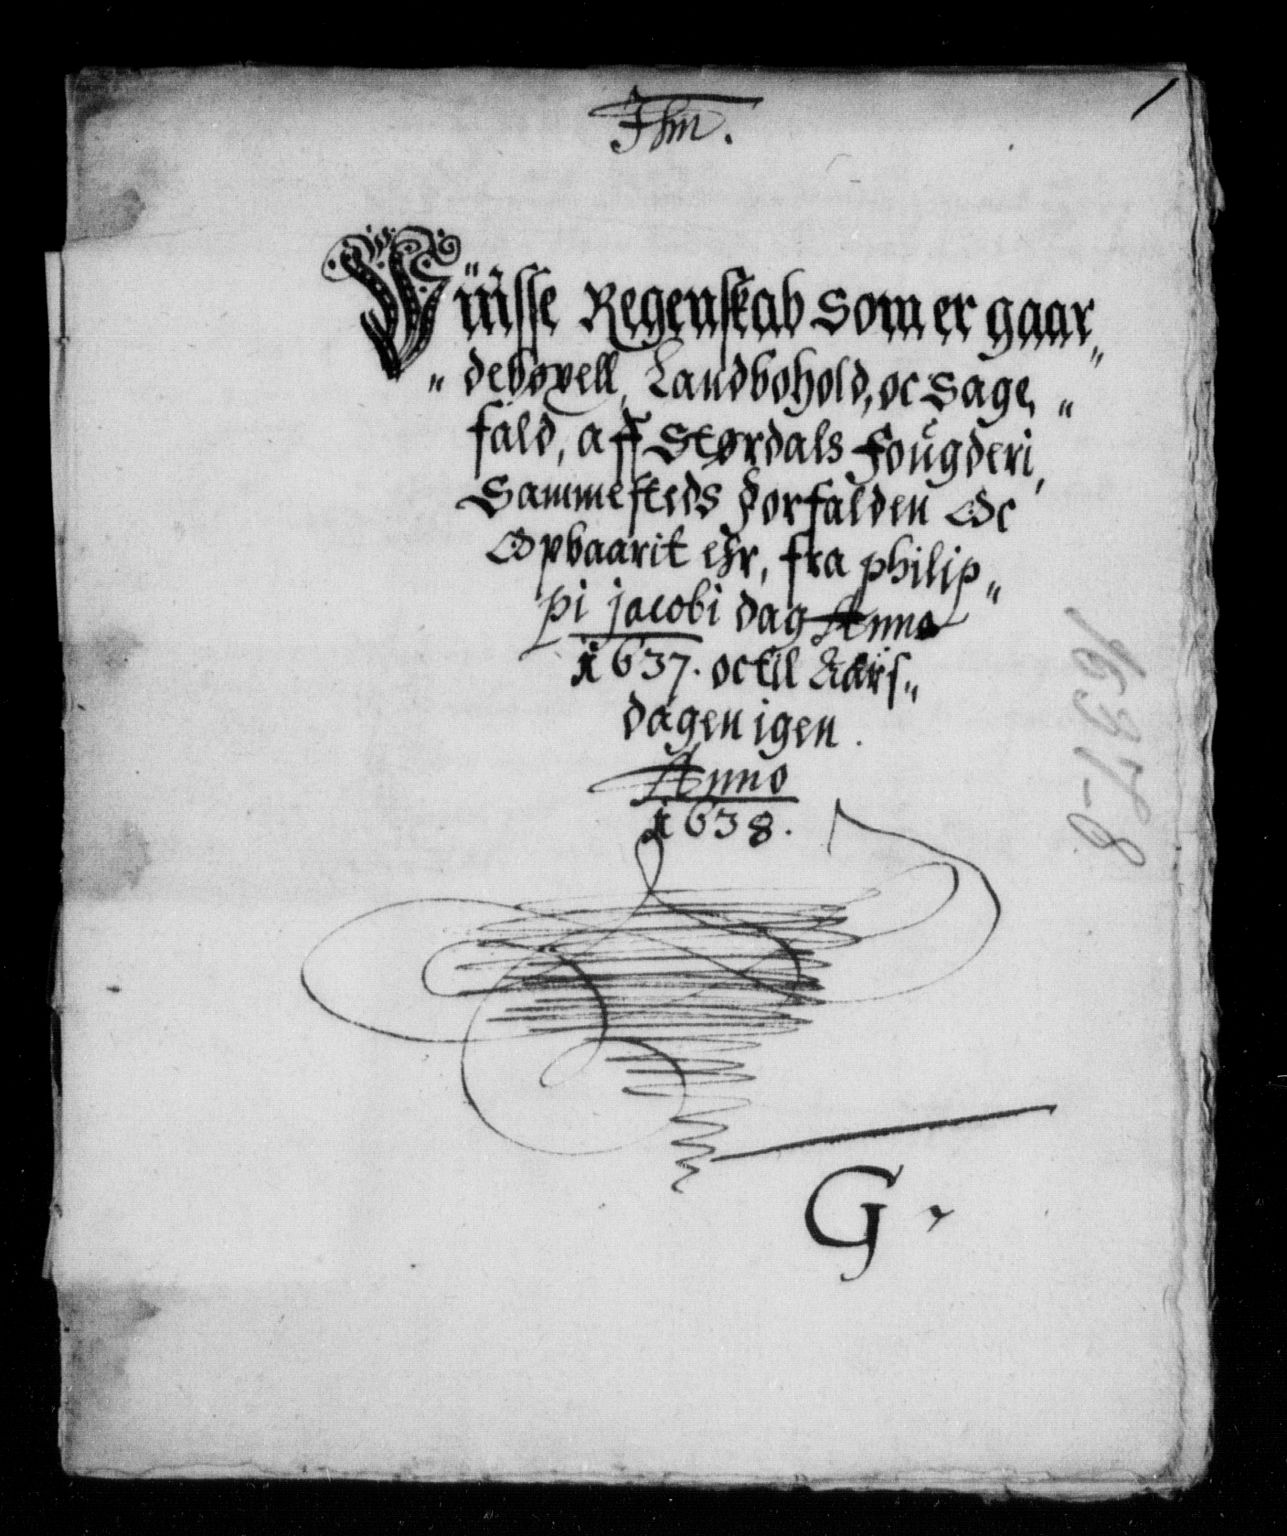 Jhm.
Vüisse Regenskab som er gaar„
„ debøxell, Landbohold, oc Sage„
fald, aff Størdals Fougderi,
Sammesteds forfalden Oc
Opbaarit ehr, fra philip„
pi jacobi dag Anno
1637. oc til Aars„
dagen igen.
Anno
1638.
1637-8
G.